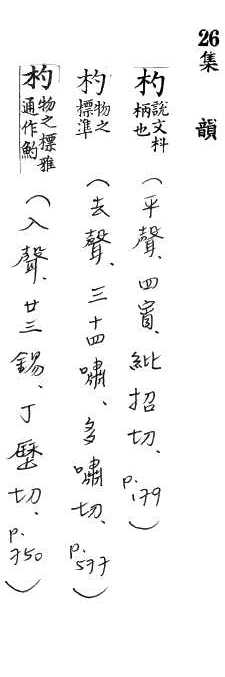 26 集韻
杓 說文枓柄也（平聲、四宵、紕招切、p.179）
杓 物之標準（去聲、三十四嘯、多嘯切、p.577）
杓 物之標雅通作魡（入聲、廿三錫、丁歷切、p.750）